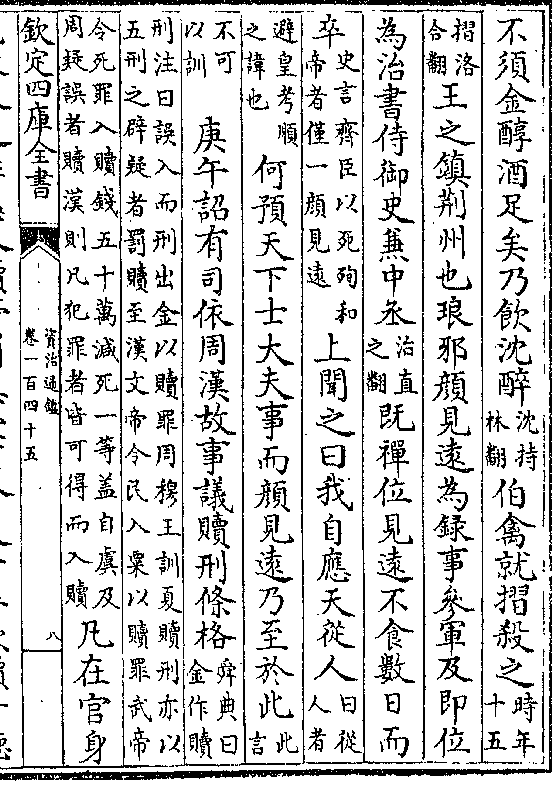 不須金醇酒足矣乃飲沈醉沈持林翻伯禽就摺殺之時年十五
摺洛合翻王之鎮荆州也琅邪顔見遠為録事參軍及即位
為治書侍御史兼中丞治直之翻既禪位見遠不食數日而
卒史言齊臣以死殉和帝者僅一顔見遠上聞之曰我自應天從人曰從人者
避皇考順之諱也何預天下士大夫事而顔見遠乃至於此此言
不可以訓庚午詔有司依周漢故事議贖刑條格舜典曰金作贖
刑注曰誤入而刑出金以贖罪周穆王訓夏贖刑亦以
五刑之辟疑者罰贖至漢文帝令民入粟以贖罪武帝
令死罪入贖錢五十萬減死一等盖自虞及
周疑誤者贖漢則凡犯罪者皆可得而入贖凡在官身
欽定四庫全書
資治通鑑
卷一百四十五
八